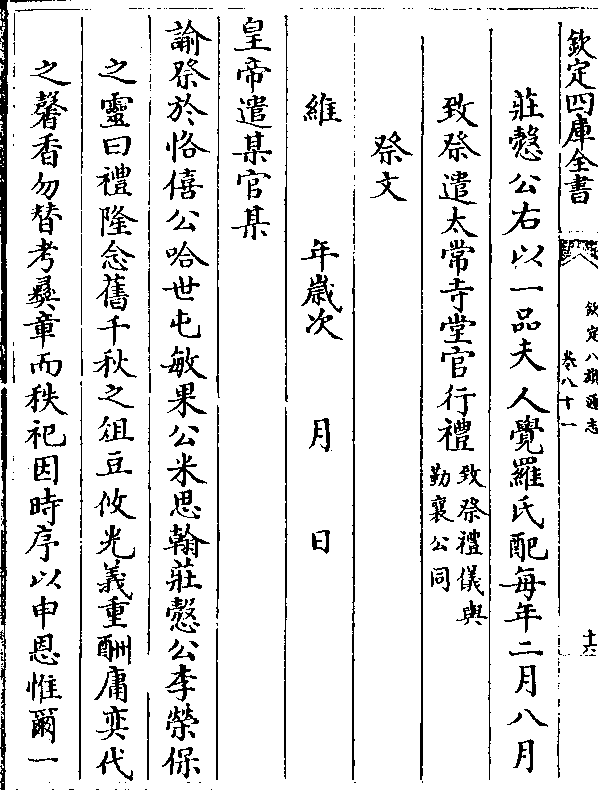 欽定四庫全書
欽定八旗通志
卷八十一
莊慤公右以一品夫人覺羅氏配每年二月八月
致祭遣太常寺堂官行禮致祭禮儀與勤襄公同
祭文
維　年歲次　月　日
皇帝遣某官某
諭祭於恪僖公哈世屯敏果公米思翰莊慤公李榮保
之靈曰禮隆念舊千秋之俎豆攸光義重酬庸奕代
之馨香勿替考彝章而秩祀因時序以申恩惟爾一